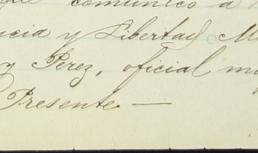 comunico a
icia y Libertad, M
y Perez, oficial m
Presente —